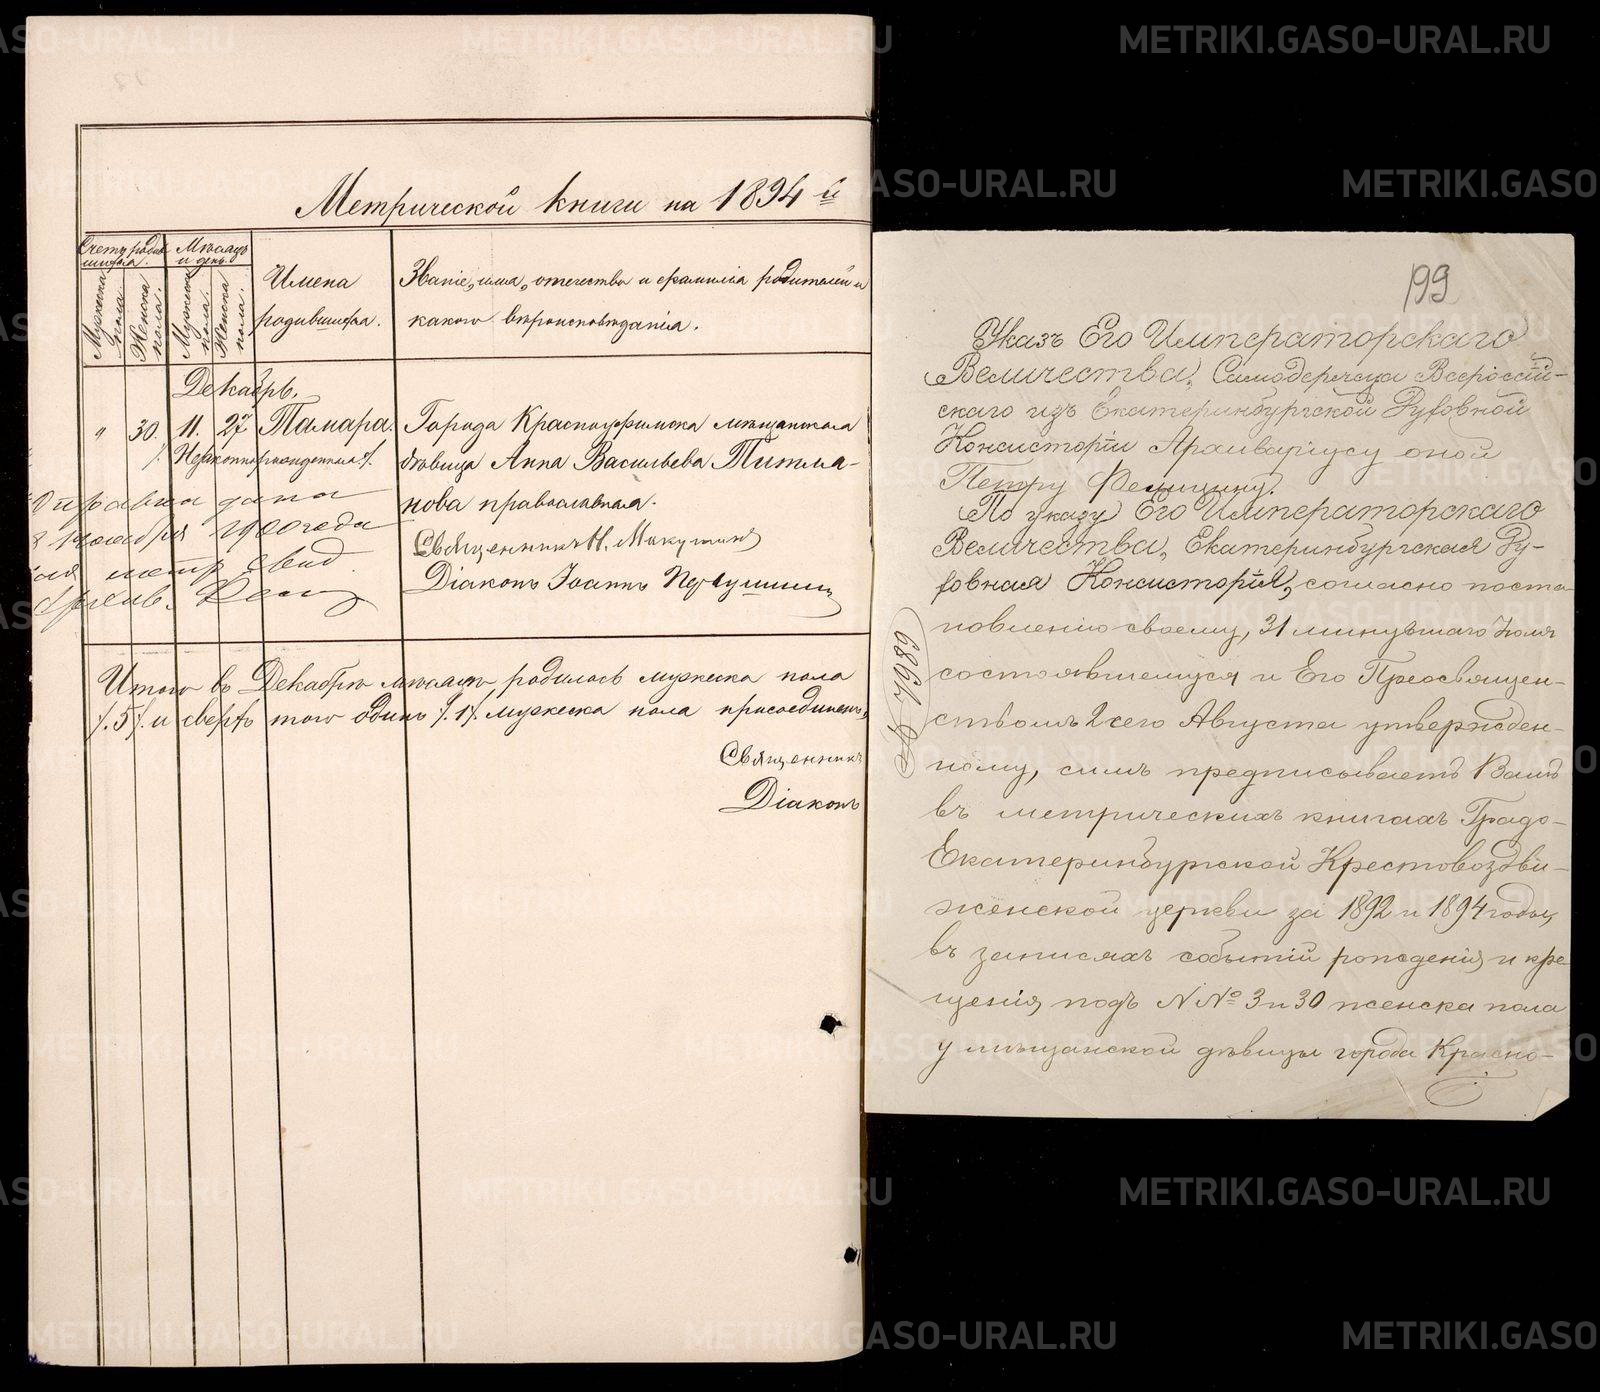 Метрической книги на 1894й
Счетъ родив
шихся.
Мѣсяцъ
и день.
Мужеска
пола.
Женска
пола.
Мужеска
пола.
Женска
пола.
Имена
родившихся.
Званіе, имя, отечество и фамилія родителей и
какого вѣроисповѣданія.
Декабрь.
" 30. 11. 27 Тамара. Города Красноуфимска мѣщанская
/. Незаконнорожденная /. дѣвица Анна Васильева Титма-
нова православная.
дана
1900 года
метр. свид.
Священникъ Н. Макушинъ
Діаконъ Іоаннъ
Итого въ Декабрѣ мѣсяцѣ родилось мужеска пола
/.5/. и сверхъ того одинъ /.1/. мужеска пола присоединенъ
Священникъ
Діаконъ
199
Указъ Его Императорскаго
Величества, Самодержца Всероссій-
скаго изъ Екатеринбургской Духовной
Консисторіи Архиваріусу оной
Петру Фелицину.
По указу Его Императорскаго
Величества, Екатеринбургская Ду-
ховная Консисторія, согласно поста-
новленію своему, 31 минувшаго Іюля
состоявшемуся и Его Преосвящен-
ствомъ 2 сего Августа утвержден-
ному, симъ предписываетъ Вамъ
въ метрическихъ книгахъ Градо-
Екатеринбургской Крестовоздви-
женской церкви за 1892 и 1894 годы,
въ записяхъ событій рожденія и кре-
щенія подъ №№ 3 и 30 женска пола
у мѣщанской дѣвицы города Красно-
METRIKI.GASO-URAL.RU